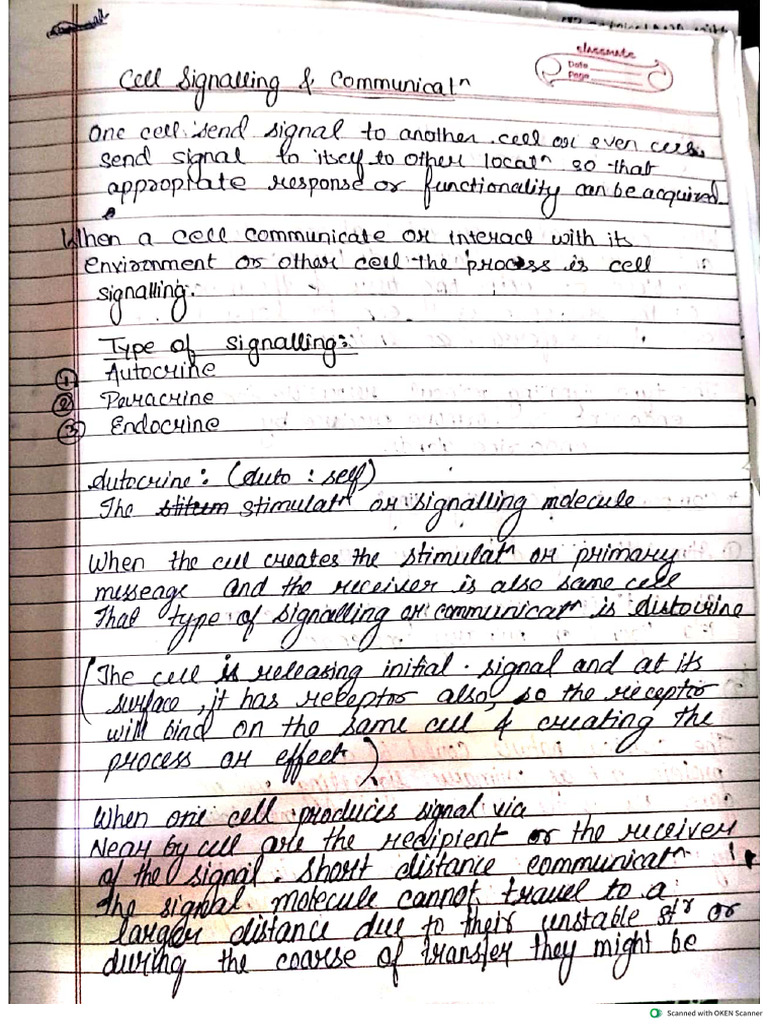 classmate
Date
Page
Cell Signalling & Communicatⁿ
One cell send signal to another cell or even cells
send signal to itself to other locatⁿ so that
appropriate response or functionality can be acquired
When a cell communicate or interact with its
environment or other cell the process is cell
signalling.
Type of signalling:
① Autocrine
② Paracrine
③ Endocrine
Autocrine: (Auto : self)
The stimulatⁿ or signalling molecule
When the cell creates the stimulatⁿ or primary
messeage and the receiver is also same cell
That type of signalling or communicatⁿ is autocrine
(The cell is releasing initial signal and at its
surface, it has receptor also, so the receptor
will bind on the same cell & creating the
process or effect)
When one cell produces signal via
Near by cell are the recipient or the receiver
of the signal. Short distance communicatⁿ
The signal molecule cannot travel to a
larger distance due to their unstable stʳ or
during the coarse of transfer they might be
Scanned with OKEN Scanner